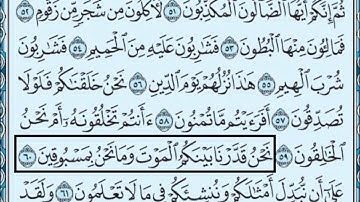 ثُمَّ إِنَّكُمْ أَيُّهَا الضَّالُّونَ الْمُكَذِّبُونَ ٥١ لَآكِلُونَ مِن شَجَرٍ مِّن زَقُّومٍ ٥٢
فَمَالِـُٔونَ مِنْهَا الْبُطُونَ ٥٣ فَشَارِبُونَ عَلَيْهِ مِنَ الْحَمِيمِ ٥٤ فَشَارِبُونَ
شُرْبَ الْهِيمِ ٥٥ هَٰذَا نُزُلُهُمْ يَوْمَ الدِّينِ ٥٦ نَحْنُ خَلَقْنَاكُمْ فَلَوْلَا
تُصَدِّقُونَ ٥٧ أَفَرَءَيْتُم مَّا تُمْنُونَ ٥٨ ءَأَنتُمْ تَخْلُقُونَهُ أَمْ نَحْنُ
الْخَالِقُونَ ٥٩ نَحْنُ قَدَّرْنَا بَيْنَكُمُ الْمَوْتَ وَمَا نَحْنُ بِمَسْبُوقِينَ ٦٠
عَلَىٰ أَن نُّبَدِّلَ أَمْثَالَكُمْ وَنُنشِئَكُمْ فِي مَا لَا تَعْلَمُونَ ٦١ وَلَقَدْ